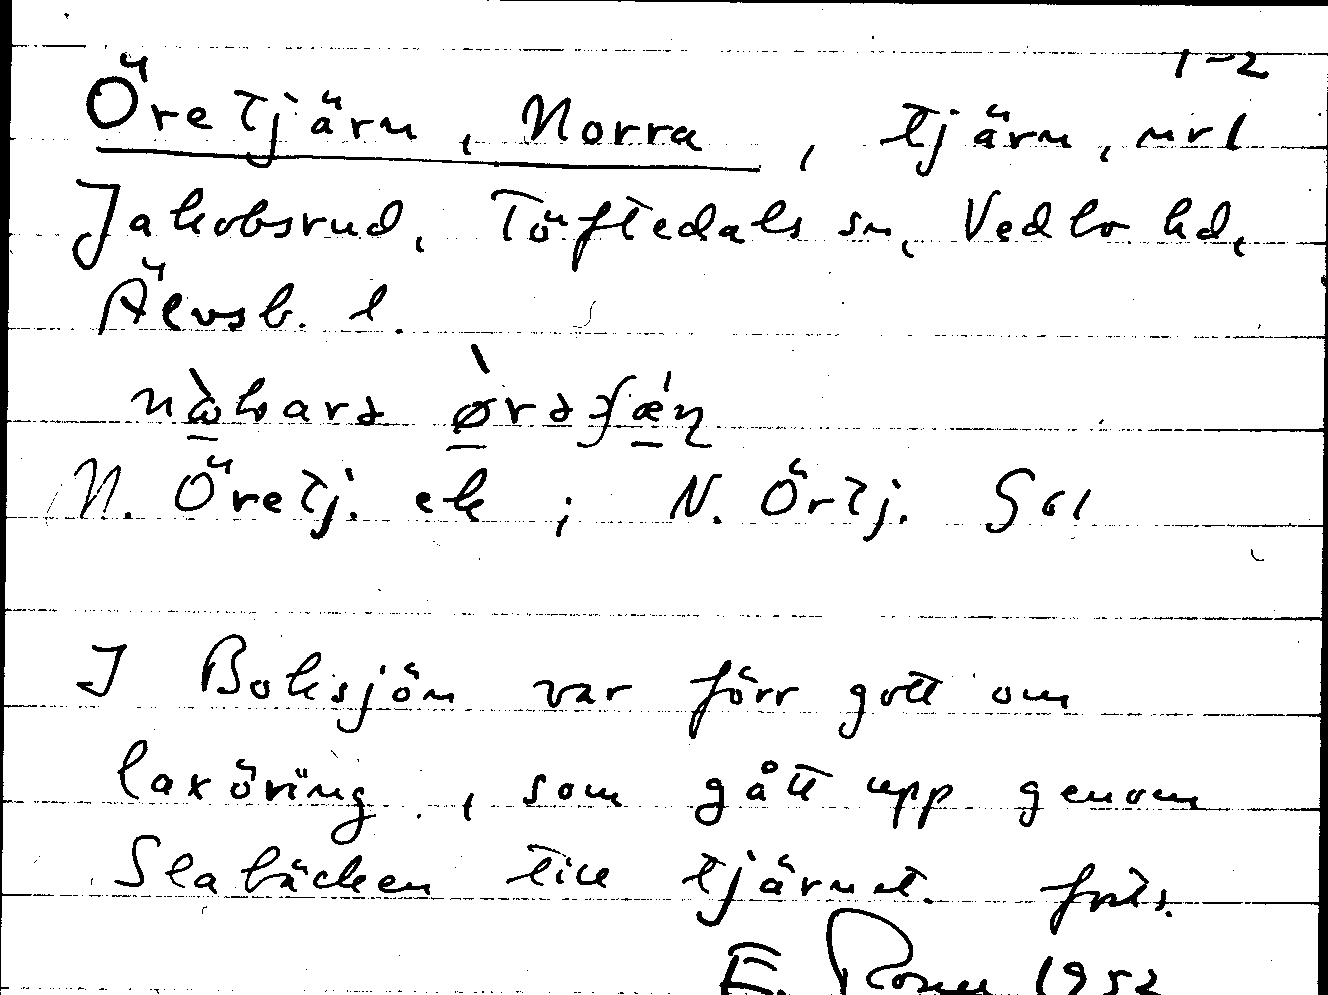 1-2
Öretjärn, Norra, tjärn, nr 1
Jakobsrud, Töftedals sn, Vedbo hd,
Älvsb. l.
N. Öretj. ek ; N. Örtj. G61
I Boksjön var förr gott om
laxöring, som gått upp genom
Slabäcken till tjärnet. forts.
E. Rosell 1952